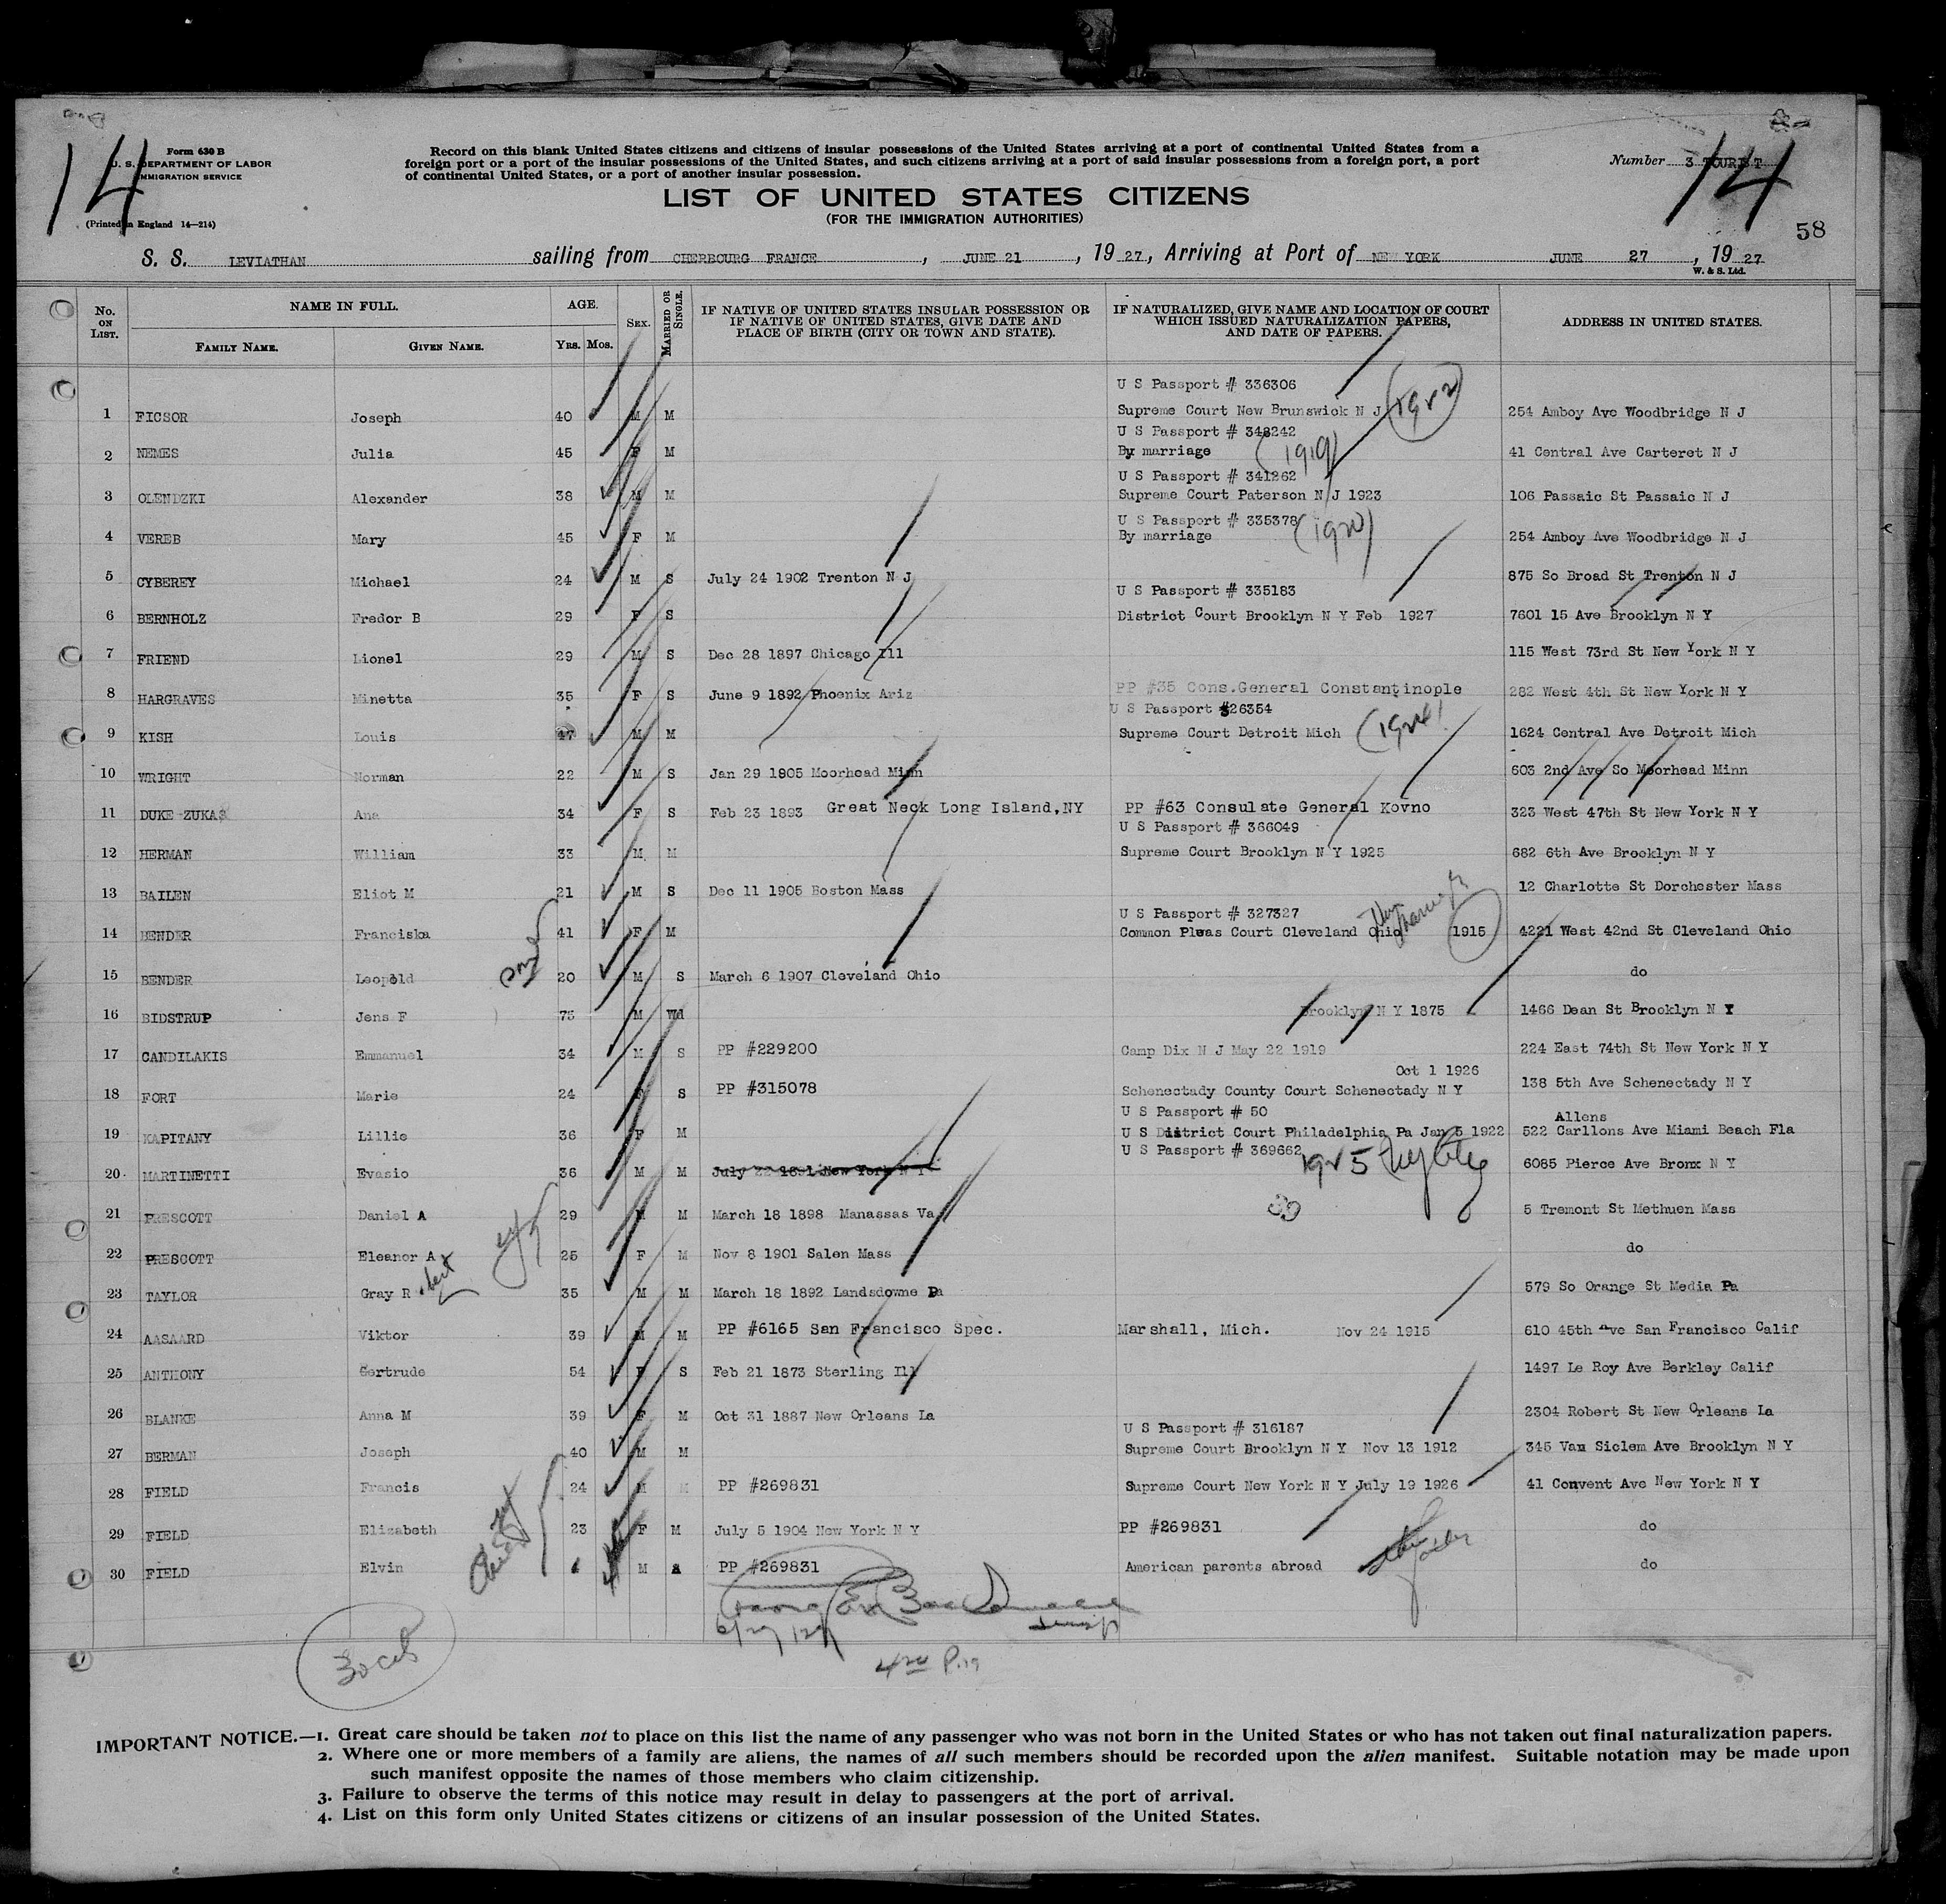 14
Form 630 B
U. S. DEPARTMENT OF LABOR
IMMIGRATION SERVICE
(Printed in England 14—214)
Record on this blank United States citizens and citizens of insular possessions of the United States arriving at a port of continental United States from a
foreign port or a port of the insular possessions of the United States, and such citizens arriving at a port of said insular possessions from a foreign port, a port
of continental United States, or a port of another insular possession.
Number 3 TOURIST
14
LIST OF UNITED STATES CITIZENS
(FOR THE IMMIGRATION AUTHORITIES)
58
S. S. LEVIATHAN sailing from CHERBOURG FRANCE, JUNE 21, 19 27, Arriving at Port of NEW YORK JUNE 27, 19 27
W. & S. Ltd.
No. ON LIST. NAME IN FULL. FAMILY NAME. GIVEN NAME. AGE. YRS. MOS. SEX. MARRIED OR SINGLE. IF NATIVE OF UNITED STATES INSULAR POSSESSION OR IF NATIVE OF UNITED STATES, GIVE DATE AND PLACE OF BIRTH (CITY OR TOWN AND STATE). IF NATURALIZED, GIVE NAME AND LOCATION OF COURT WHICH ISSUED NATURALIZATION PAPERS, AND DATE OF PAPERS. ADDRESS IN UNITED STATES.
U S Passport # 336306
1 FICSOR Joseph 40 M M Supreme Court New Brunswick N J (1922) 254 Amboy Ave Woodbridge N J
U S Passport # 348242
2 NEMES Julia 45 F M By marriage (1919) 41 Central Ave Carteret N J
U S Passport # 341262
3 OLENDZKI Alexander 38 M M Supreme Court Paterson N J 1923 106 Passaic St Passaic N J
U S Passport # 335378
4 VEREB Mary 45 F M By marriage (1920) 254 Amboy Ave Woodbridge N J
5 CYBEREY Michael 24 M S July 24 1902 Trenton N J 875 So Broad St Trenton N J
U S Passport # 335183
6 BERNHOLZ Fredor B 29 F S District Court Brooklyn N Y Feb 1927 7601 15 Ave Brooklyn N Y
7 FRIEND Lionel 29 M S Dec 28 1897 Chicago Ill 115 West 73rd St New York N Y
8 HARGRAVES Minetta 35 F S June 9 1892 Phoenix Ariz PP #35 Cons.General Constantinople 282 West 4th St New York N Y
U S Passport #26354
9 KISH Louis 47 M M Supreme Court Detroit Mich (1924) 1624 Central Ave Detroit Mich
10 WRIGHT Norman 22 M S Jan 29 1905 Moorhead Minn 603 2nd Ave So Moorhead Minn
11 DUKE ZUKAS Ana 34 F S Feb 23 1893 Great Neck Long Island,NY PP #63 Consulate General Kovno 323 West 47th St New York N Y
U S Passport # 366049
12 HERMAN William 33 M M Supreme Court Brooklyn N Y 1925 682 6th Ave Brooklyn N Y
13 BAILEN Eliot M 21 M S Dec 11 1905 Boston Mass 12 Charlotte St Dorchester Mass
U S Passport # 327327
14 BENDER Franciska 41 F M Common Pleas Court Cleveland Ohio 1915 4221 West 42nd St Cleveland Ohio
15 BENDER Leopold 20 M S March 6 1907 Cleveland Ohio do
16 BIDSTRUP Jens F 75 M Wd Brooklyn N Y 1875 1466 Dean St Brooklyn N Y
17 CANDILAKIS Emmanuel 34 M S PP #229200 Camp Dix N J May 22 1919 224 East 74th St New York N Y
Oct 1 1926
18 FORT Marie 24 F S PP #315078 Schenectady County Court Schenectady N Y 138 5th Ave Schenectady N Y
U S Passport # 50 Allens
19 KAPITANY Lillie 36 F M U S District Court Philadelphia Pa Jan 5 1922 522 Carllons Ave Miami Beach Fla
U S Passport # 369662
20 MARTINETTI Evasio 36 M M July 22 1891 New York N Y 1925 6085 Pierce Ave Bronx N Y
21 PRESCOTT Daniel A 29 M M March 18 1898 Manassas Va 5 Tremont St Methuen Mass
22 PRESCOTT Eleanor A 25 F M Nov 8 1901 Salen Mass do
23 TAYLOR Gray Robert 35 M M March 18 1892 Landsdowne Pa 579 So Orange St Media Pa
24 AASAARD Viktor 39 M M PP #6165 San Francisco Spec. Marshall, Mich. Nov 24 1915 610 45th Ave San Francisco Calif
25 ANTHONY Gertrude 54 F S Feb 21 1873 Sterling Ill 1497 Le Roy Ave Berkley Calif
26 BLANKE Anna M 39 F M Oct 31 1887 New Orleans La 2304 Robert St New Orleans La
U S Passport # 316187
27 BERMAN Joseph 40 M M Supreme Court Brooklyn N Y Nov 13 1912 345 Van Siclem Ave Brooklyn N Y
28 FIELD Francis 24 M M PP #269831 Supreme Court New York N Y July 19 1926 41 Convent Ave New York N Y
29 FIELD Elizabeth 23 F M July 5 1904 New York N Y PP #269831 do
30 FIELD Elvin M PP #269831 American parents abroad do
6/27/27
IMPORTANT NOTICE.—1. Great care should be taken not to place on this list the name of any passenger who was not born in the United States or who has not taken out final naturalization papers.
2. Where one or more members of a family are aliens, the names of all such members should be recorded upon the alien manifest. Suitable notation may be made upon
such manifest opposite the names of those members who claim citizenship.
3. Failure to observe the terms of this notice may result in delay to passengers at the port of arrival.
4. List on this form only United States citizens or citizens of an insular possession of the United States.